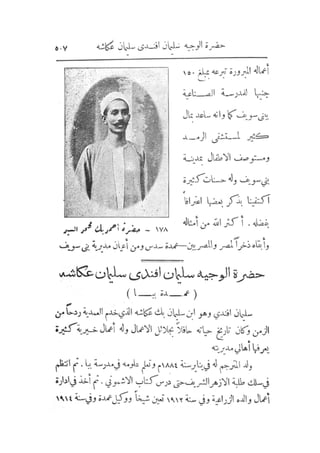 حضرة الوجيه سليمان افندى سليمان عكاشه ٥٠٧
أعماله المبرورة تبرعه بمبلغ ١٥٠
جنيها لمدرسة الصناعية
ببنى سويف كما وانه ساعد بمال
كثير لمستشفى الرمد
ومستوصف الاطفال بمدينة
بنى سويف وله حسنات كثيرة
اكتفينا بذكر بعضها اعترافاً
بفضله . أكثر الله من أمثاله
١٧٨ - حضرة احمد بك محمد السيد
وأبقاه ذخراً لمصر والمصريين – عمدة سدس ومن أعيان مديرية بنى سويف
حضرة الوجيه سليمان افندى سليمان عكاشه
( عمدة ببا )
سليمان افندى وهو ابن سليمان بك عكاشه الذى خدم العمدية ردحاً من
الزمن وكان تاريخ حياته حافلاً بجلائل الاعمال وله أعمال خيرية كثيرة
يعرفها أهالى مديريته
ولد المترجم له فى يناير سنة ١٨٨٤م وتعلم علومه فى مدرسة ببا . ثم انتظم
فى سلك طلبة الازهر الشريف حتى درس كتاب الاشمونى . ثم أخذ فى ادارة
أعمال والده الزراعية وفى سنة ١٩١٢ تعين شيخاً ووكيل عمدة وفى سنة ١٩١٤